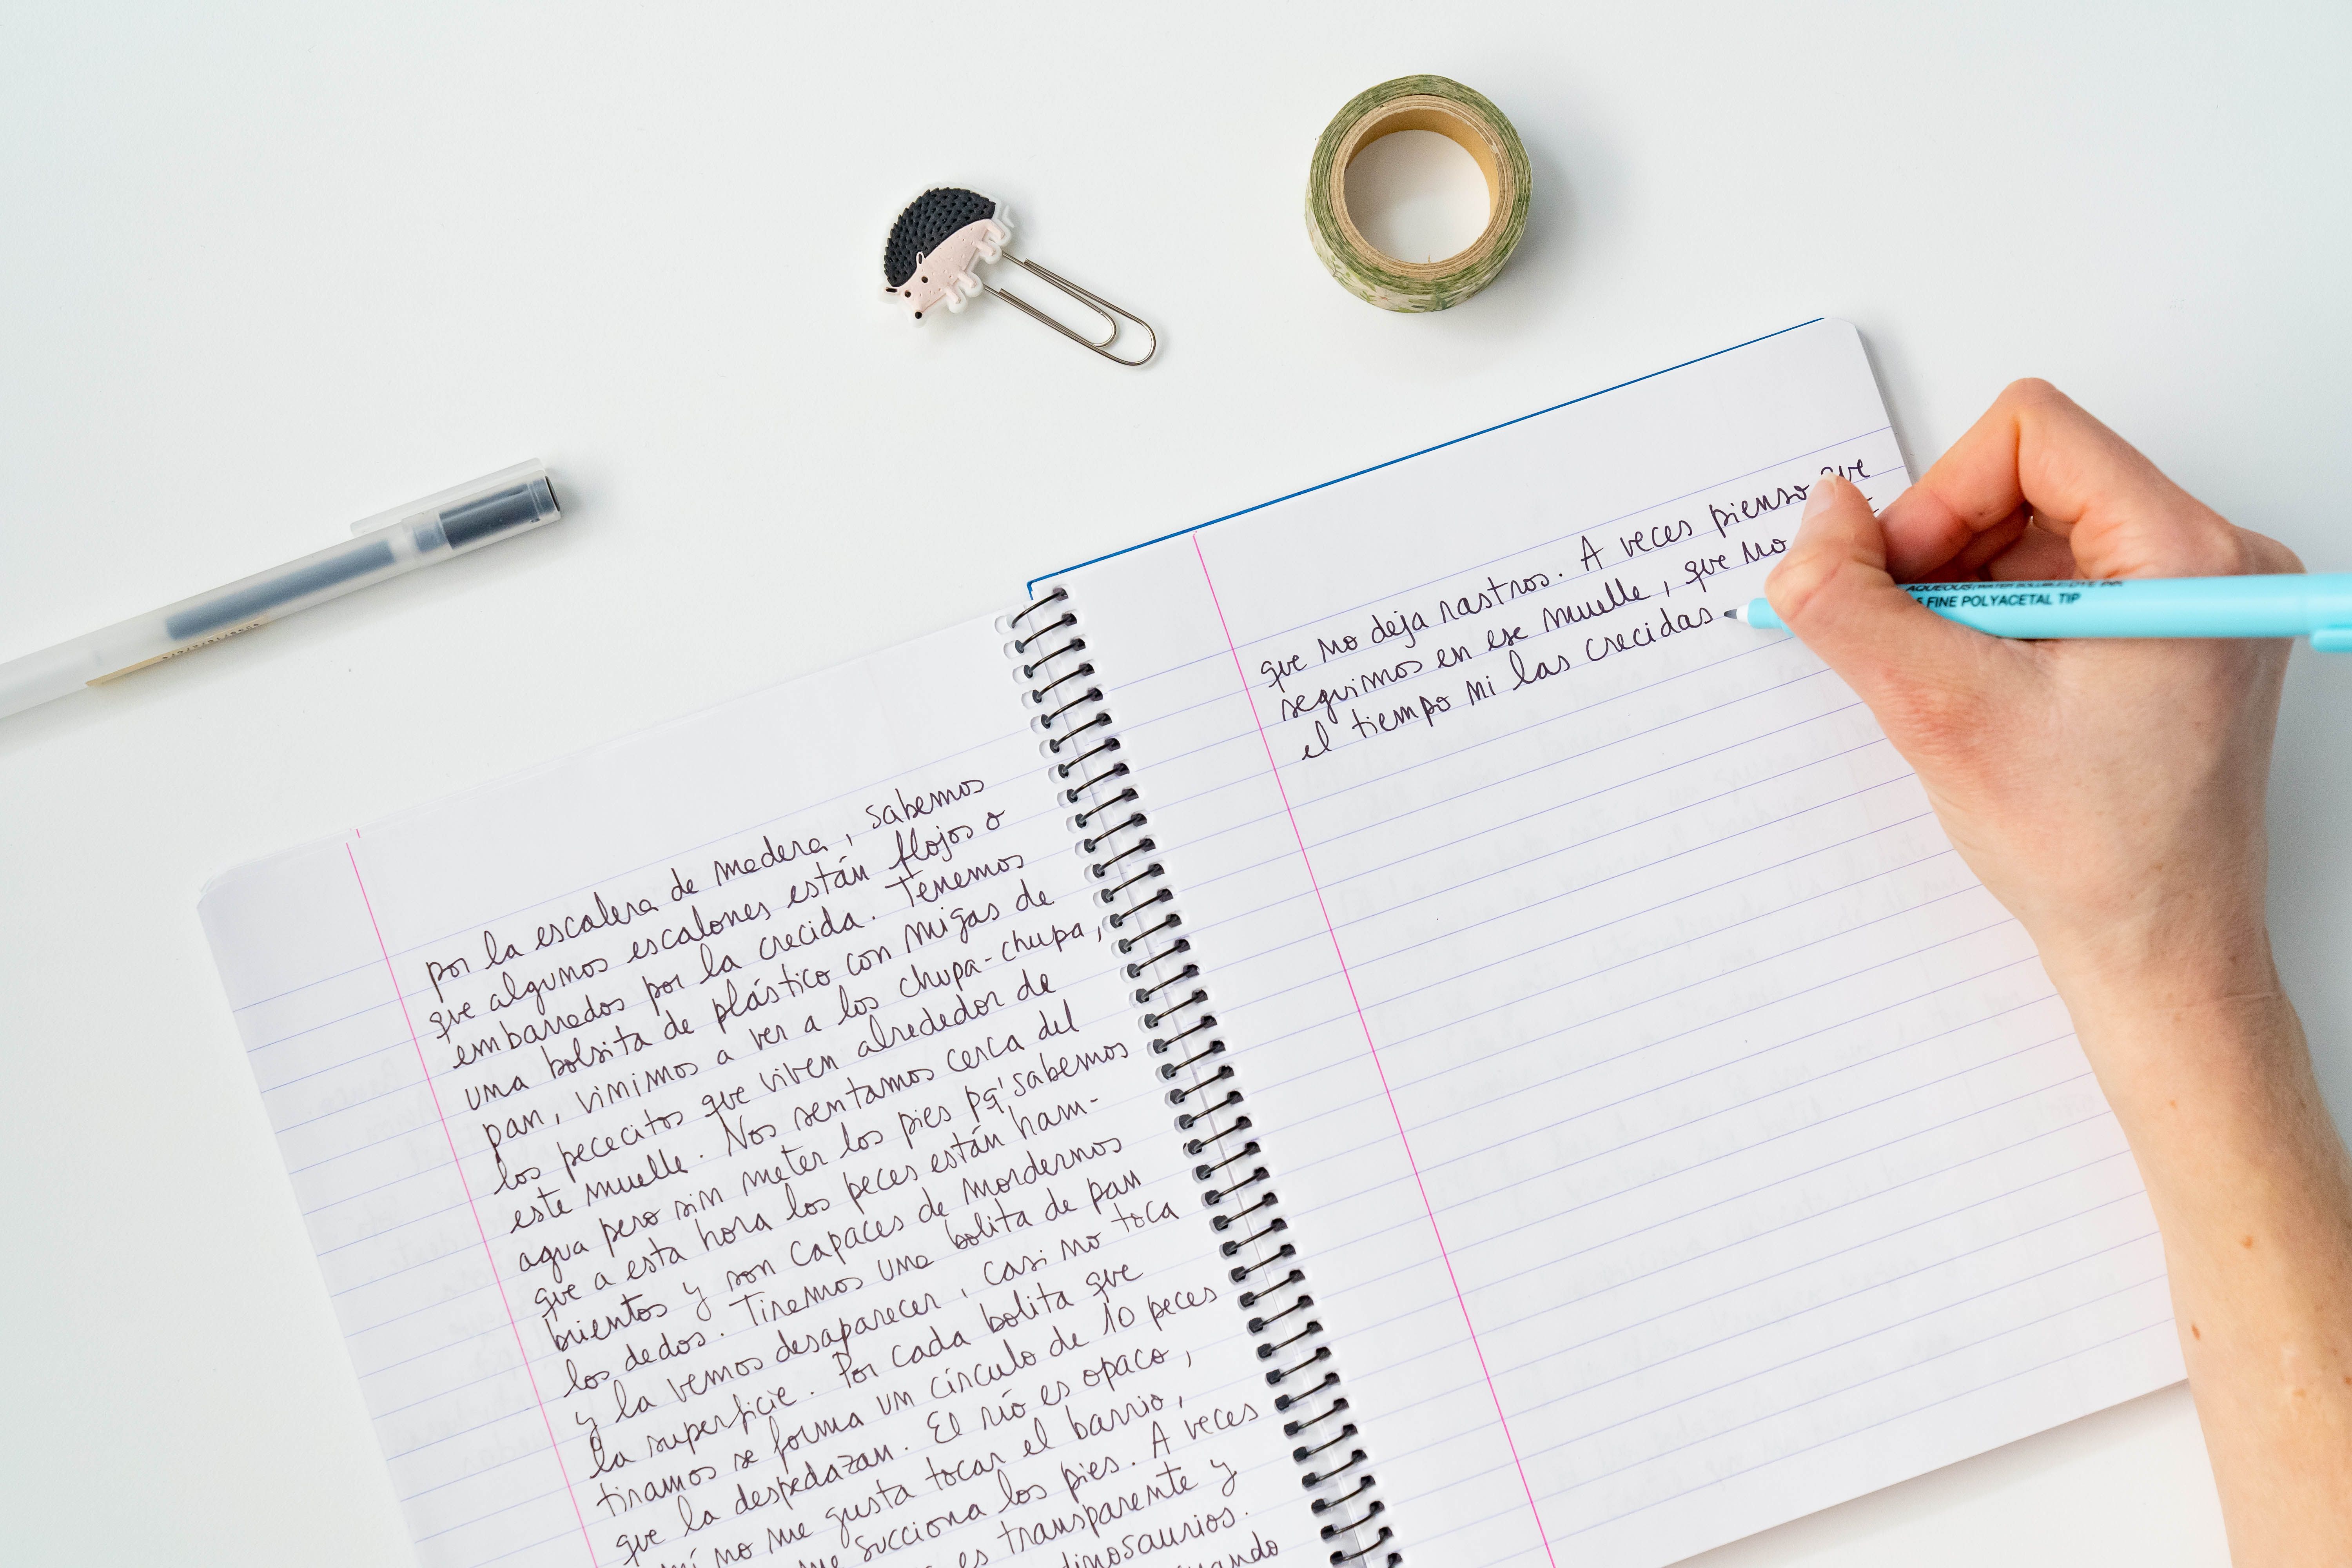 por la escalera de madera, sabemos
que algunos escalones están flojos o
embarrados por la crecida. Tenemos
una bolsita de plástico con migas de
pan, vinimos a ver a los chupa-chupa,
los pececitos que viven alrededor de
este muelle. Nos sentamos cerca del
agua pero sin meter los pies pq' sabemos
que a esta hora los peces están ham-
brientos y son capaces de mordernos
los dedos. Tiremos una bolita de pan
y la vemos desaparecer, casi no toca
la superficie. Por cada bolita que
tiramos se forma un círculo de 10 peces
que la despedazan. El río es opaco,
no me gusta tocar el barrio,
me succiona los pies. A veces
es transparente y
dinosaurios.
cuando
que no deja rastros. A veces pienso que
seguimos en ese muelle, que no
el tiempo ni las crecidas
AQUEOUS/WATER
FINE POLYACETAL TIP